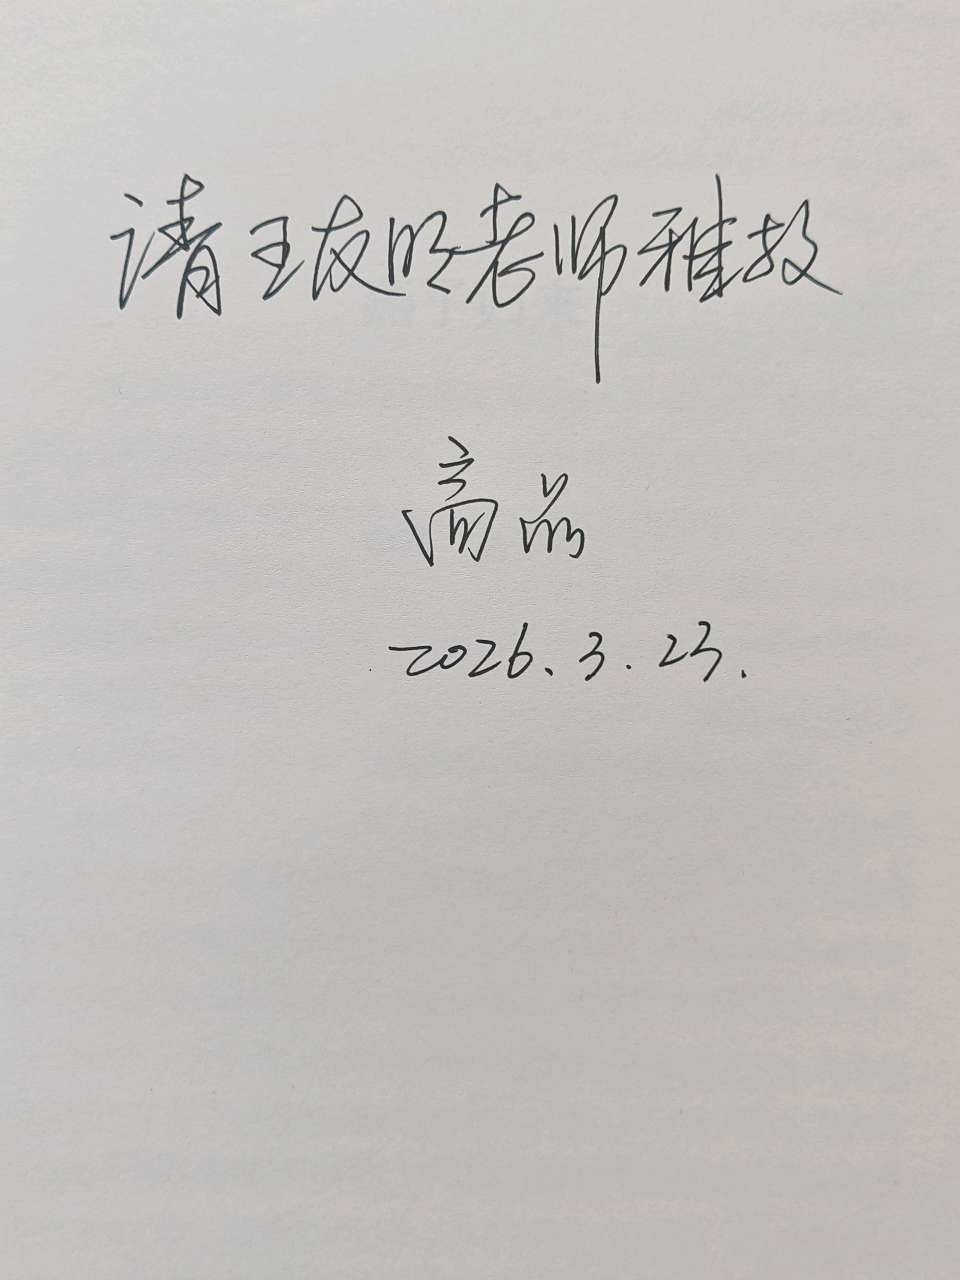 请王友明老师雅教
高品
2026.3.23.